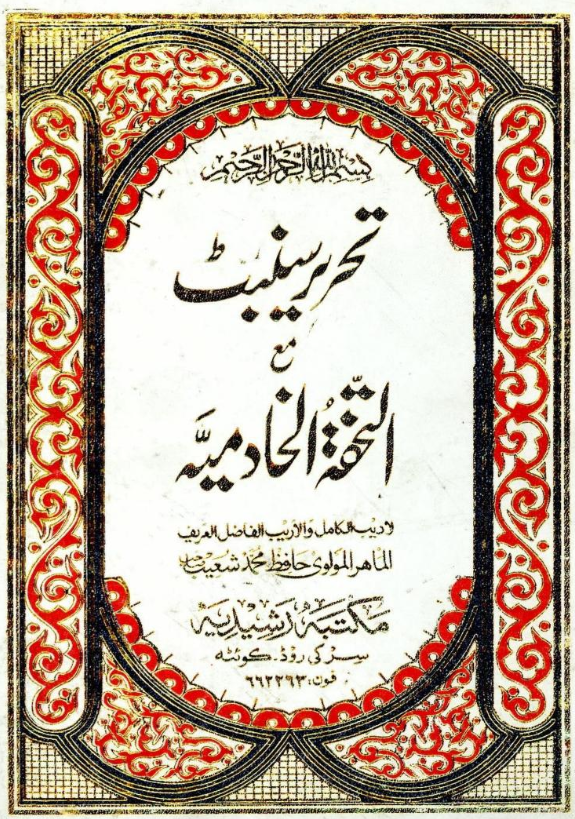 بسم الله الرحمن الرحيم
تحریر سنبٹ
مع
التحفۃ الخادمیہ
لاديب الكامل والأريب الفاضل العريف
الماهر المولوی حافظ محمد شعیب
مکتبه رشیدیه
سرکی روڈ۔ کوئٹہ
فون: ۶۶۲۲۹۳